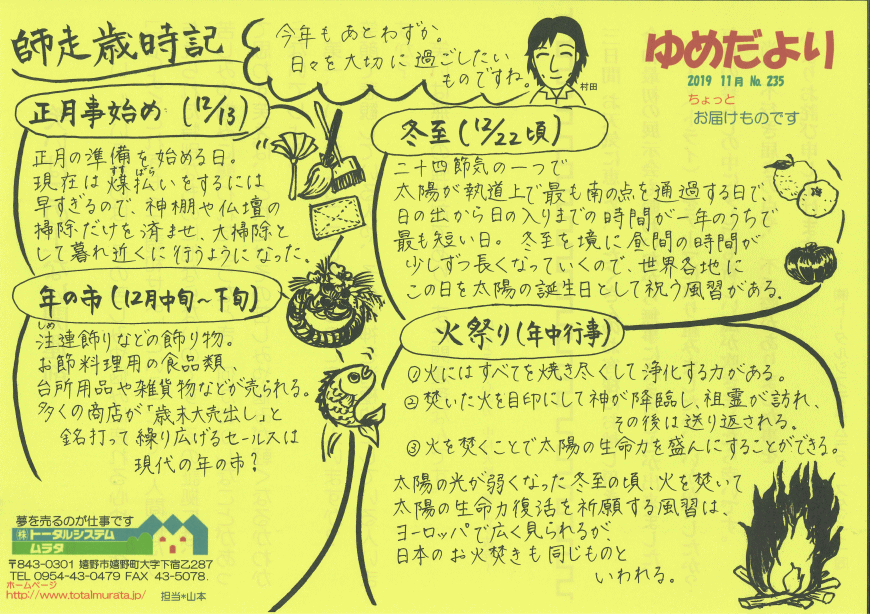 師走歳時記
今年もあとわずか。
日々を大切に過ごしたい
ものですね。
村田
ゆめだより
2019 11月 No. 235
ちょっと
お届けものです
正月事始め (12/13)
正月の準備を始める日。
現在は煤払いをするには
すす ばら
早すぎるので、神棚や仏壇の
掃除だけを済ませ、大掃除と
して暮れ近くに行うようになった。
年の市 (12月中旬〜下旬)
しめ
注連飾りなどの飾り物。
お節料理用の食品類、
台所用品や雑貨物などが売られる。
多くの商店が「歳末大売出し」と
銘打って繰り広げるセールスは
現代の年の市？
冬至 (12/22頃)
二十四節気の一つで
太陽が軌道上で最も南の点を通過する日で、
日の出から日の入りまでの時間が一年のうちで
最も短い日。冬至を境に昼間の時間が
少しずつ長くなっていくので、世界各地に
この日を太陽の誕生日として祝う風習がある。
火祭り(年中行事)
①火にはすべてを焼き尽くして浄化する力がある。
②焚いた火を目印にして神が降臨し、祖霊が訪れ、
その後は送り返される。
③火を焚くことで太陽の生命力を盛んにすることができる。
太陽の光が弱くなった冬至の頃、火を焚いて
太陽の生命力復活を祈願する風習は、
ヨーロッパで広く見られるが、
日本のお火焚きも同じものと
いわれる。
夢を売るのが仕事です
㈱トータルシステム
ムラタ
〒843-0301 嬉野市嬉野町大字下宿乙287
TEL 0954-43-0479 FAX 43-5078.
ホームページ
http://www.totalmurata.jp/ 担当*山本